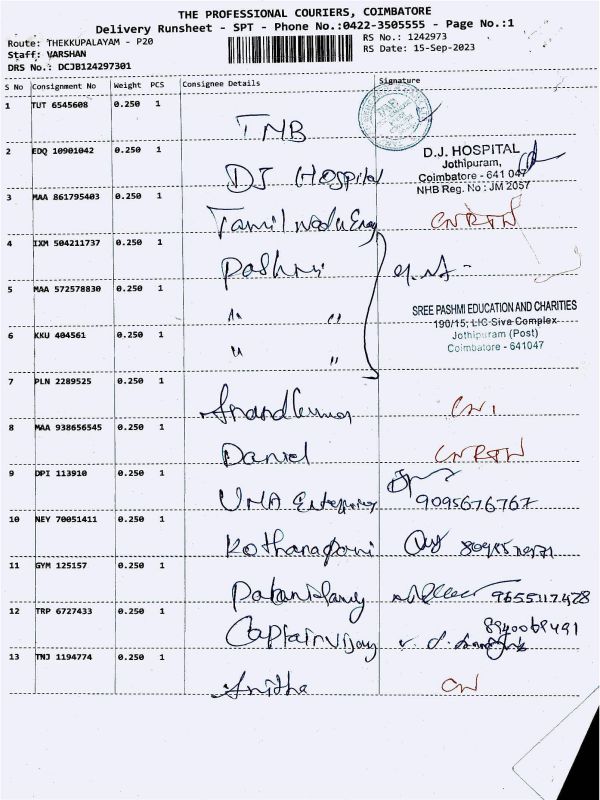 THE PROFESSIONAL COURIERS, COIMBATORE
Delivery Runsheet - SPT - Phone No.:0422-3505555 - Page No.:1
Route: THEKKUPALAYAM - P20
RS No.: 1242973
Staff: VARSHAN
RS Date: 15-Sep-2023
DRS No.: DCJB124297301
S No Consignment No Weight PCS Consignee Details Signature
1 TUT 6545608 0.250 1 TMB
2 EDQ 10901042 0.250 1 DJ Hospital
D.J. HOSPITAL
Jothipuram,
Coimbatore - 641 047
NHB Reg. No : JM 2057
3 MAA 861795403 0.250 1 Tamil nadu CNRTN
4 IXM 504211737 0.250 1 Pashmi
5 MAA 572578830 0.250 1 " "
SREE PASHMI EDUCATION AND CHARITIES
190/15, LIC Siva Complex
Jothipuram (Post)
Coimbatore - 641047
6 KKU 404561 0.250 1 " "
7 PLN 2289525 0.250 1 Anandkumar
8 MAA 938656545 0.250 1 Daniel CNRTN
9 DPI 113910 0.250 1 UMA Enterprises 9095676767
10 NEY 70051411 0.250 1
11 GYM 125157 0.250 1 9655117478
12 TRP 6727433 0.250 1 Captain vijay 8940069491
13 TNJ 1194774 0.250 1 Anitha CN